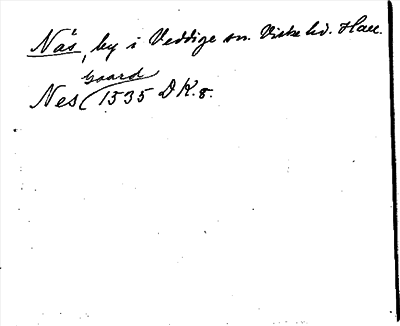 Nås, by i Veddige sn. Viske hd. Hall.
gaard
Nes (1535 DK. 8.